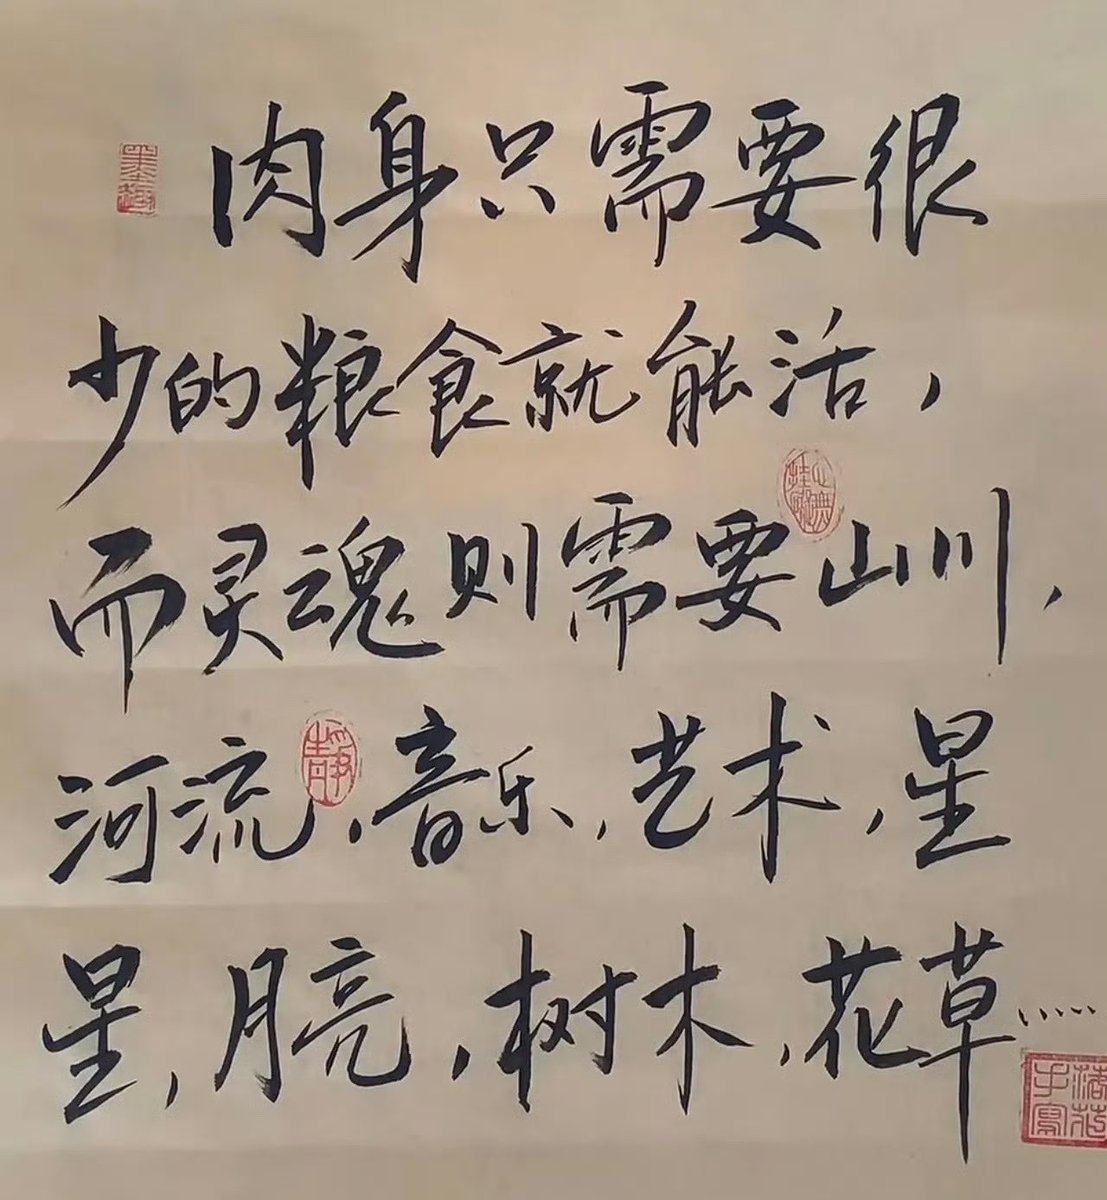 肉身只需要很
少的粮食就能活，
而灵魂则需要山川，
河流，音乐，艺术，星
星，月亮，树木，花草……
墨趣
静